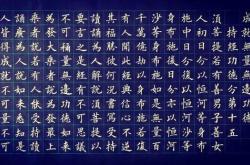 持經功德分第十五
須菩提若有善男子善女
人初日分以恒河沙等身布
施中日分復以恒河沙等
身布施後日分亦以恒河
沙等身布施如是無量百
千萬億劫以身布施若復
有人聞此經典信心不逆
其福勝彼何況書寫受持
讀誦為人解說須菩提以
要言之是經有不可思議
不可稱量無邊功德如來
為發大乘者說為發最上
乘者說若有人能受持讀
誦廣為人說如來悉知是
人悉見是人皆得成就不可